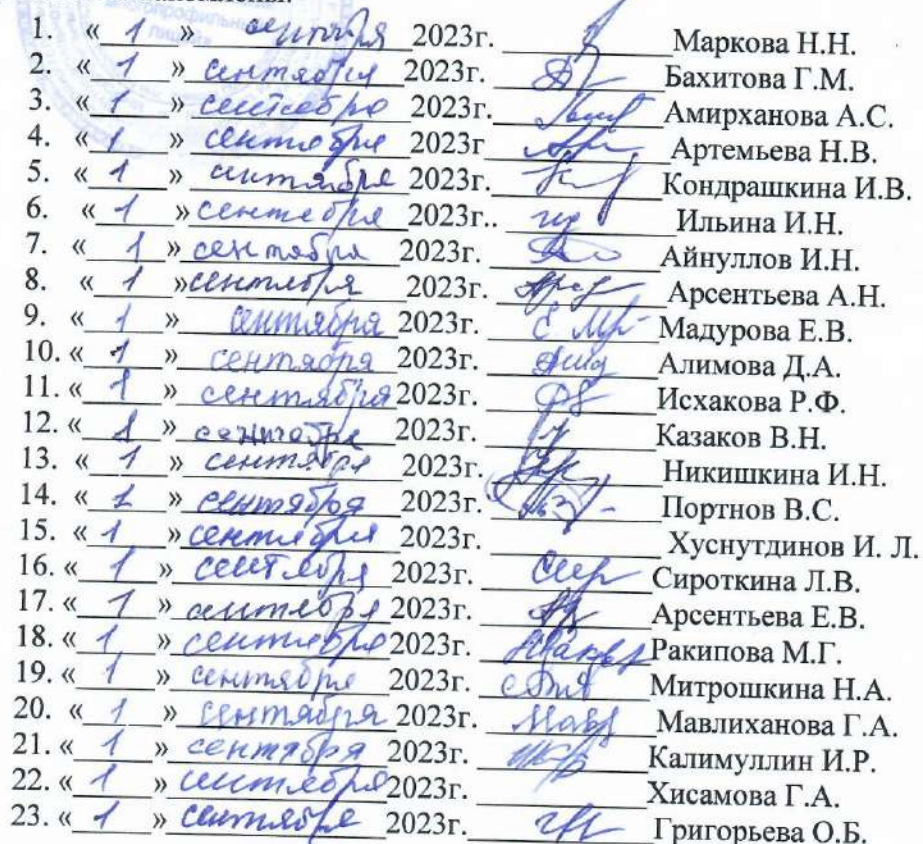 1. « 1 » сентября 2023г. Маркова Н.Н.
2. « 1 » сентября 2023г. Бахитова Г.М.
3. « 1 » сентября 2023г. Амирханова А.С.
4. « 1 » сентября 2023г Артемьева Н.В.
5. « 1 » сентября 2023г. Кондрашкина И.В.
6. « 1 » сентября 2023г.. Ильина И.Н.
7. « 1 » сентября 2023г. Айнуллов И.Н.
8. « 1 » сентября 2023г. Арсентьева А.Н.
9. « 1 » сентября 2023г. Мадурова Е.В.
10. « 1 » сентября 2023г. Алимова Д.А.
11. « 1 » сентября 2023г. Исхакова Р.Ф.
12. « 1 » сентября 2023г. Казаков В.Н.
13. « 1 » сентября 2023г. Никишкина И.Н.
14. « 1 » сентября 2023г. Портнов В.С.
15. « 1 » сентября 2023г. Хуснутдинов И. Л.
16. « 1 » сентября 2023г. Сироткина Л.В.
17. « 1 » сентября 2023г. Арсентьева Е.В.
18. « 1 » сентября 2023г. Ракипова М.Г.
19. « 1 » сентября 2023г. Митрошкина Н.А.
20. « 1 » сентября 2023г. Мавлиханова Г.А.
21. « 1 » сентября 2023г. Калимуллин И.Р.
22. « 1 » сентября 2023г. Хисамова Г.А.
23. « 1 » сентября 2023г. Григорьева О.Б.